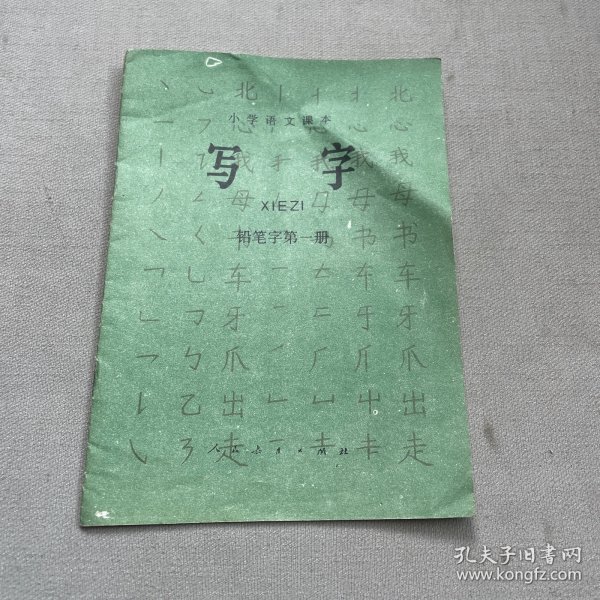 小学语文课本
写字
XIEZI
铅笔字第一册
北 北
心 心
我 我 我 我
母 母 母
书 书
车 车 车
牙 牙
爪 爪
乙 出 出
走 走
人民教育出版社
孔夫子旧书网
www.kongfz.com